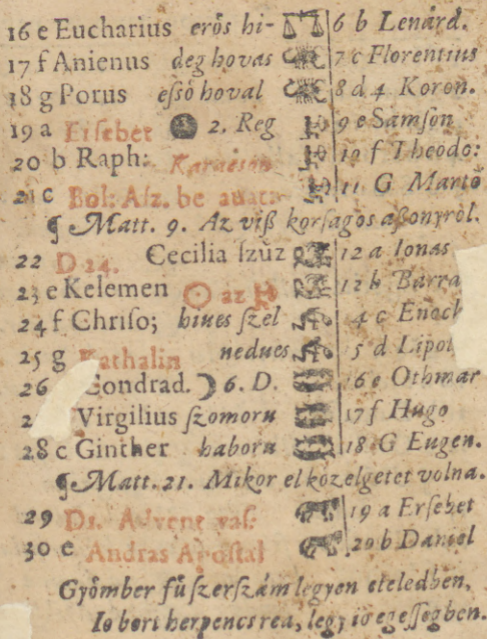 16 e Eucharius erős hi- 6 b Lenárd.
17 f Anienus deg hovas 7 c Florentius
18 g Porus esső hoval 8 d 4. Koron.
19 a Ersebet 2. Reg 9 e Samson
20 b Raph: Karacson 10 f Theodo:
21 c Bol: Asz. be auata 11 G Martō
¶ Matt. 9. Az viß korsagos aßonyról.
22 D 24. Cecilia szűz 12 a Ionas
23 e Kelemen ☉ az ♐ 12 b Barra
24 f Chriso; hives szel 4 c Enoch
25 g Kathalin nedues, 5 d Lipol
26 Condrad. ☽ 6. D. 16 e Othmar
2 Virgilius szomoru 17 f Hugo
28 c Ginther haboru 18 G Eugen.
¶ Matt. 21. Mikor el közelgetet volna.
29 D1. Advent vas: 19 a Ersebet
30 e Andras Apostal 20 b Daniel
Gyömber fű szerszám legyen eteledben,
Io bort herpencs rea, legy io egessegben.